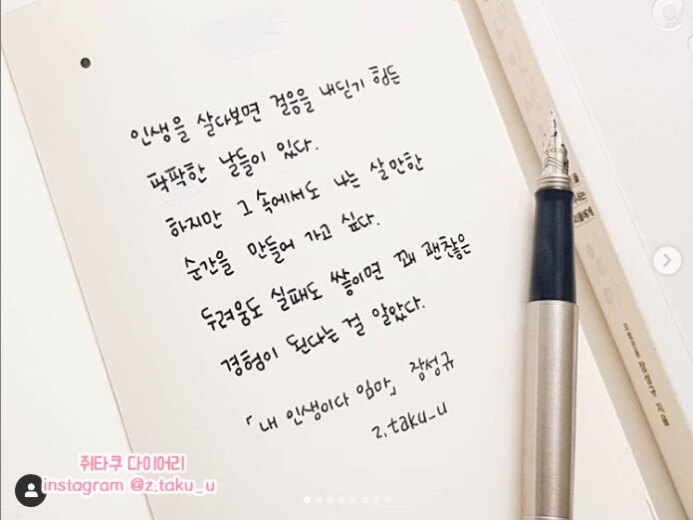 인생을 살다보면 걸음을 내딛기 힘든
팍팍한 날들이 있다.
하지만 그 속에서도 나는 살만한
순간을 만들어 가고 싶다.
두려움도 실패도 쌓이면 꽤 괜찮은
경험이 된다는 걸 알았다.
「내 인생이다 임마」 장성규
z.taku_u
쥐타쿠 다이어리
instagram @z.taku_u
장성규 지음